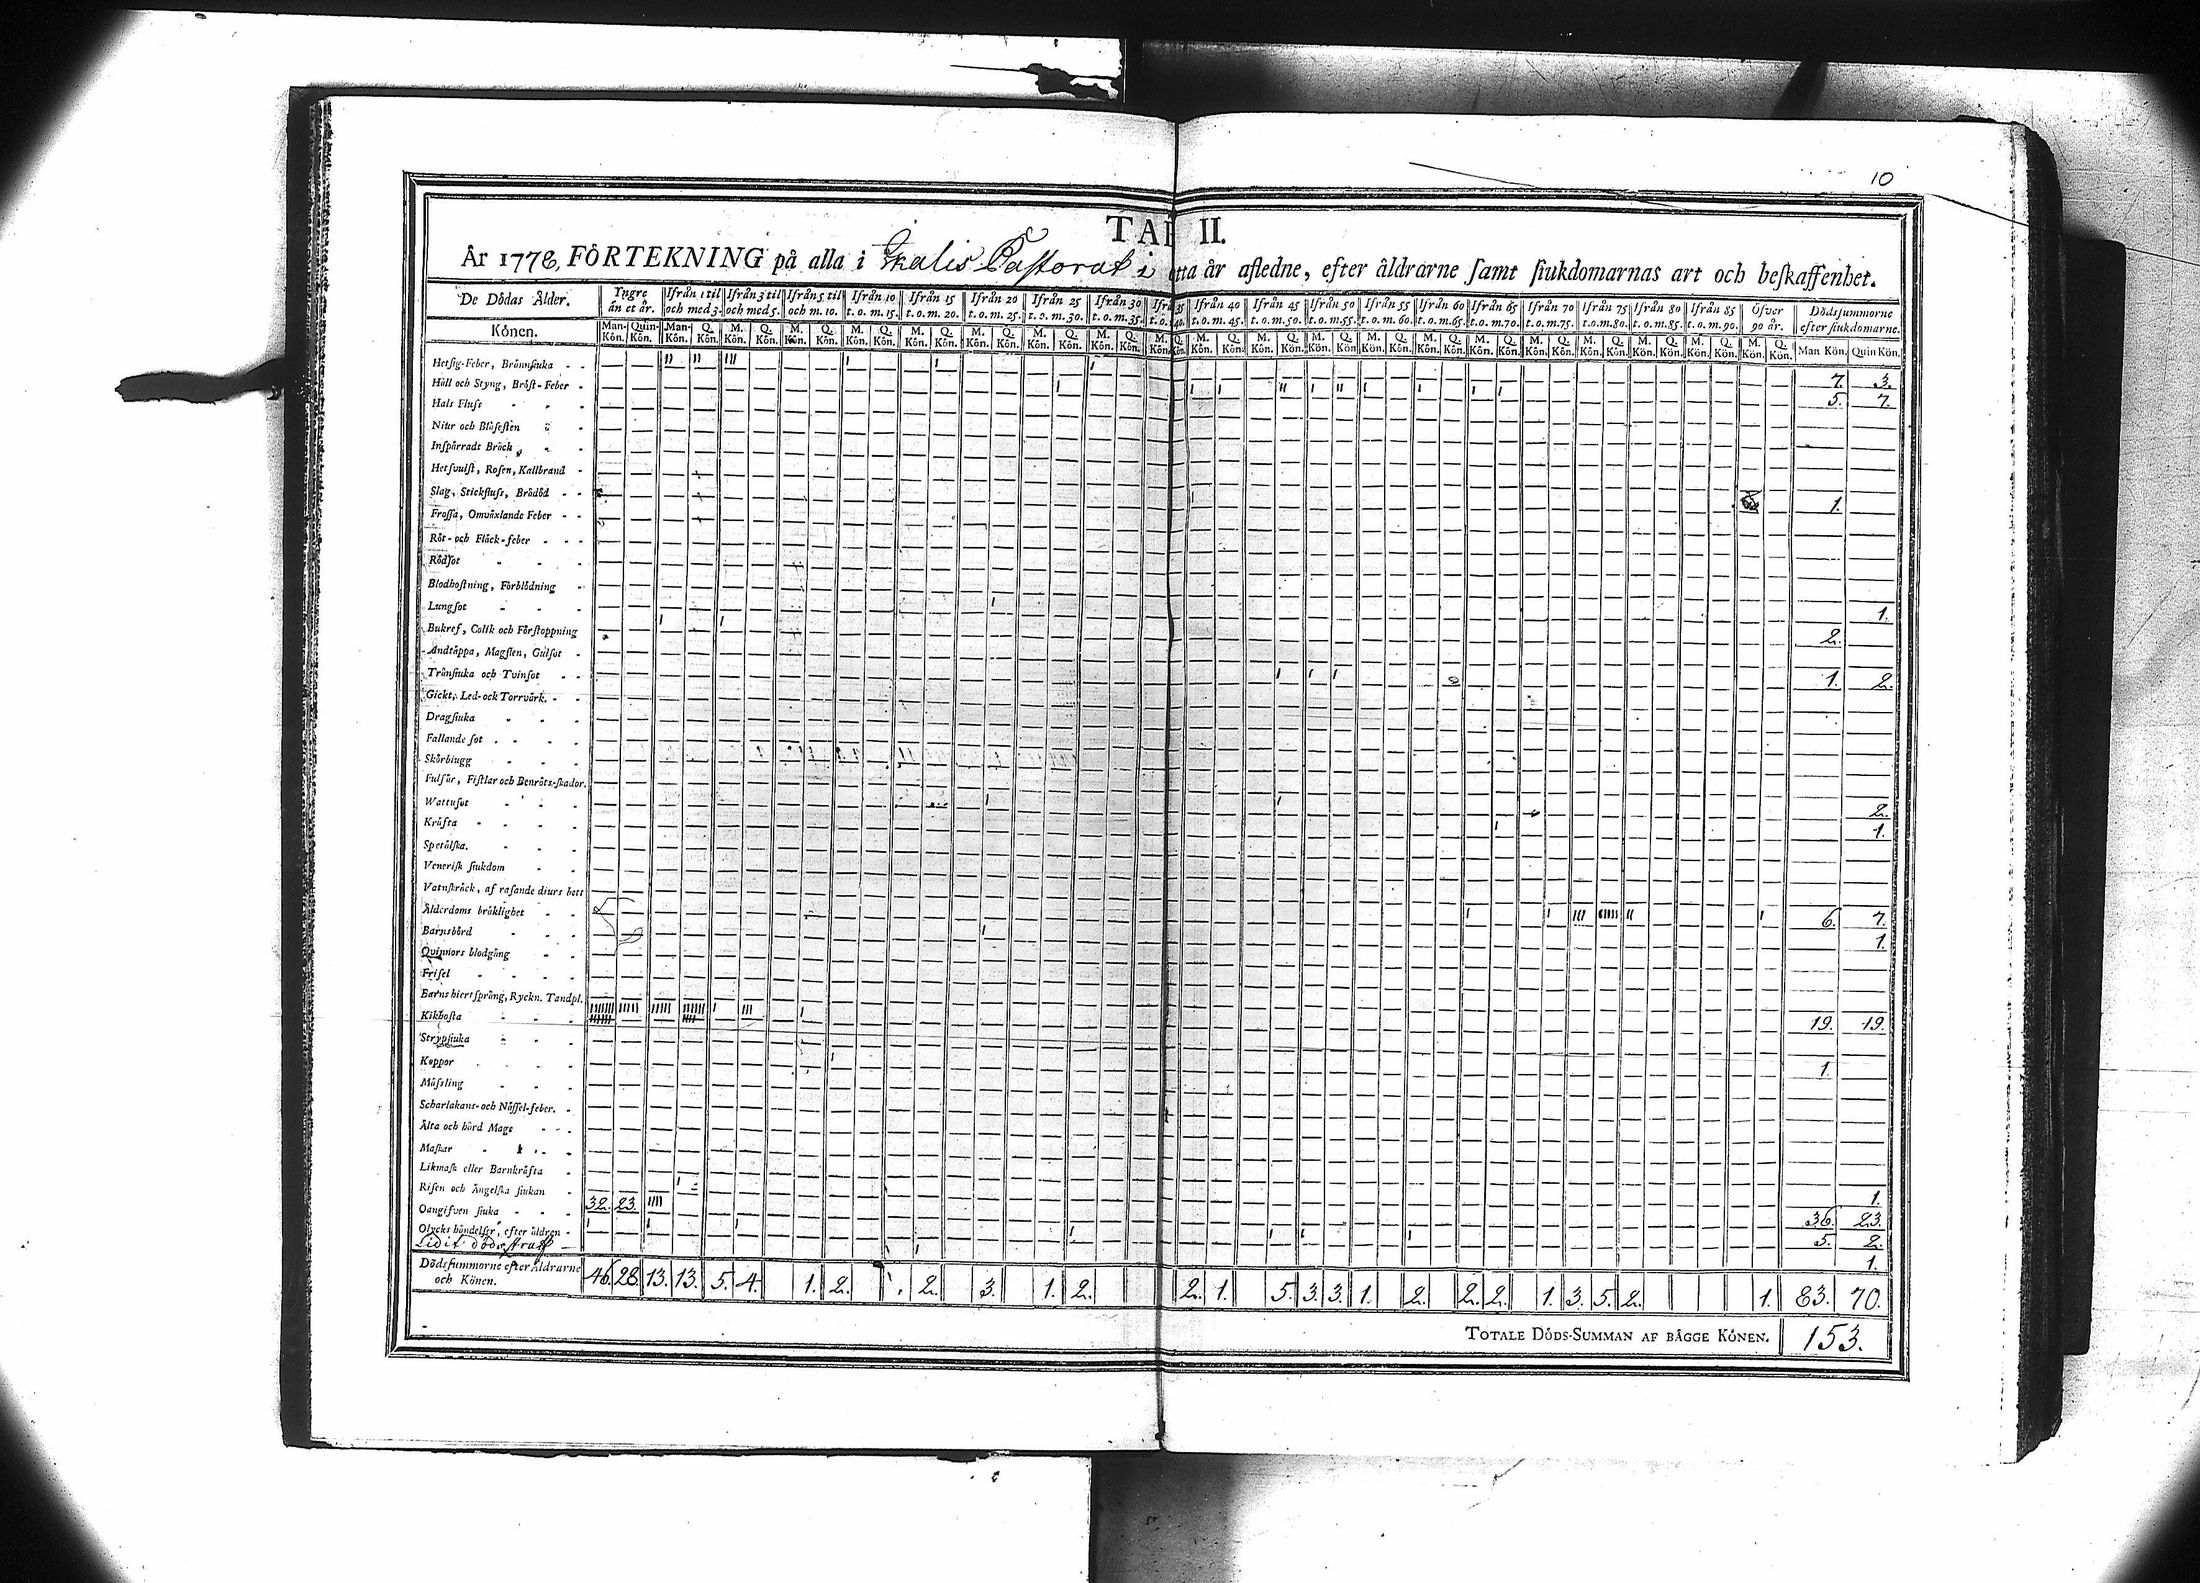 10
TAB II.
År 1778, FÖRTEKNING på alla i Ikalis Pastorat i detta år afledne, efter åldrarne samt siukdomarnas art och beskaffenhet.
De Dödas Ålder. Yngre än et år. Ifrån 1 til och med 3. Ifrån 3 til och med 5. Ifrån 5 til och m. 10. Ifrån 10 t. o. m. 15. Ifrån 15 t. o. m. 20. Ifrån 20 t. o. m. 25. Ifrån 25 t. o. m. 30. Ifrån 30 t. o. m. 35. Ifrån 35 t. o. 40. Ifrån 40 t. o. m. 45. Ifrån 45 t. o. m. 50. Ifrån 50 t. o. m. 55. Ifrån 55 t. o. m. 60. Ifrån 60 t. o. m. 65. Ifrån 65 t. o. m. 70. Ifrån 70 t. o. m. 75. Ifrån 75 t. o. m. 80. Ifrån 80 t. o. m. 85. Ifrån 85 t. o. m. 90. Öfver 90 år. Dödssummorne efter siukdomarne.
Könen. Man-Kön. Quin-Kön. Man-Kön. Q. Kön. M. Kön. Q. Kön. M. Kön. Q. Kön. M. Kön. Q. Kön. M. Kön. Q. Kön. M. Kön. Q. Kön. M. Kön. Q. Kön. M. Kön. Q. Kön. M. Kön. Q. Kön. M. Kön. Q. Kön. M. Kön. Q. Kön. M. Kön. Q. Kön. M. Kön. Q. Kön. M. Kön. Q. Kön. M. Kön. Q. Kön. M. Kön. Q. Kön. M. Kön. Q. Kön. M. Kön. Q. Kön. M. Kön. Q. Kön. M. Kön. Q. Kön. Man Kön. Quin Kön.
Hetsig-Feber, Brännsiuka 7. 3.
Håll och Styng, Bröst-Feber 5. 7.
Hals Fluss
Niur och Blåsesten
Inspärradt Bråck
Hetsvulst, Rosen, Kallbrand
Slag, Stickfluss, Brådöd 1.
Frossa, Omväxlande Feber
Röt- och Fläck-feber
Rödsot
Blodhostning, Förblödning
Lungsot 1.
Bukref, Colik och Förstoppning 2.
Andtäppa, Magsten, Gulsot
Tränsiuka och Tvinsot 1. 2.
Gickt, Led- ock Torrvärk
Dragsiuka
Fallande sot
Skörbiugg
Fulsår, Fistlar och Benröts-skador.
Wattusot 2.
Kräfta 1.
Spetälska.
Venerisk siukdom
Vatnskräck, af rasande diurs bett
Ålderdoms bräklighet 6. 7.
Barnsbörd 1.
Qvinnors blodgång
Frisel
Barns hiertsprång, Ryckn. Tandpl.
Kikhosta 19. 19.
Strypsiuka
Koppor 1.
Mässling
Scharlakans- och Nässel-feber.
Älta och hård Mage
Maskar
Likmask eller Barnkräfta
Risen och Ängelska siukan 1.
Oangifven siuka 32. 23. 36. 23.
Olycks händelser, efter äldren 5. 2.
Lidit dödsstraff 1.
Dödssummorne efter Åldrarne och Könen. 46. 28. 13. 13. 5. 4. 1. 2. 2. 3. 1. 2. 2. 1. 5. 3. 3. 1. 2. 2. 2. 1. 3. 5. 2. 1. 83. 70.
TOTALE DÖDS-SUMMAN AF BÄGGE KÖNEN. 153.